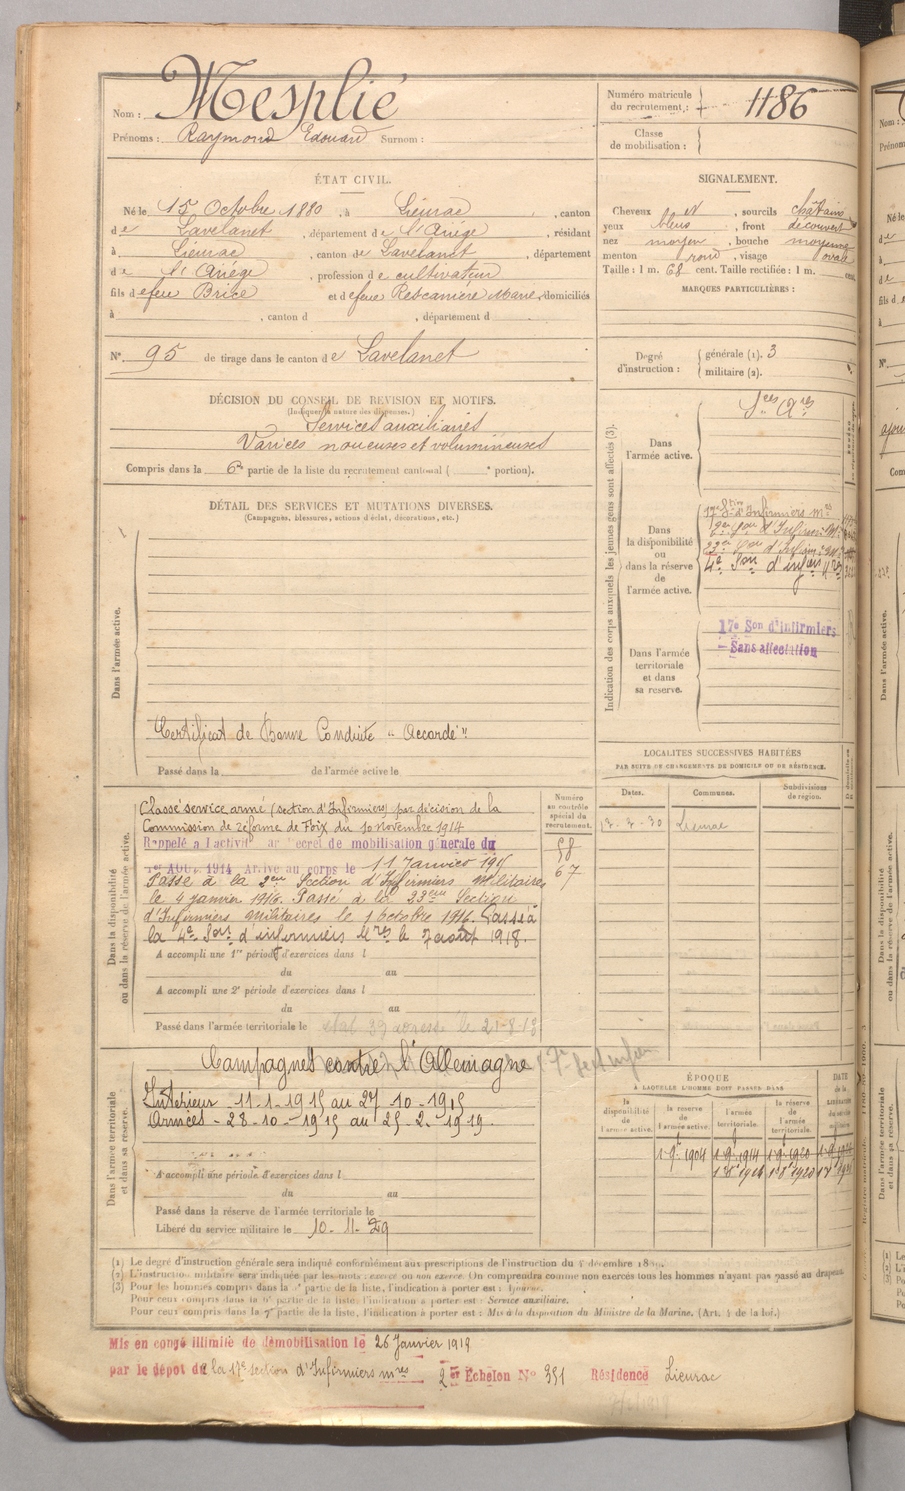 Nom : Mesplié
Prénoms : Raymond Edouard Surnom :
Numéro matricule du recrutement : 1186
Classe de mobilisation :
ÉTAT CIVIL.
Né le 15 Octobre 1880, à Lieurac, canton
de Lavelanet, département de l'Ariège, résidant
à Lieurac, canton de Lavelanet, département
de l'Ariège, profession de cultivateur
fils de feu Brice et de feue Rescanière Marie, domiciliés
à , canton d , département d
N° 95 de tirage dans le canton de Lavelanet
SIGNALEMENT.
Cheveux et , sourcils châtains
yeux bleus, front découvert
nez moyen, bouche moyenne
menton rond, visage ovale
Taille : 1 m. 68 cent. Taille rectifiée : 1 m. cent.
MARQUES PARTICULIÈRES :
Degré d'instruction : générale (1). 3
militaire (2).
DÉCISION DU CONSEIL DE REVISION ET MOTIFS.
(Indiquer la nature des dispenses.)
Services auxiliaires
Varices noueuses et volumineuses
Compris dans la 6e partie de la liste du recrutement cantonal ( e portion).
DÉTAIL DES SERVICES ET MUTATIONS DIVERSES.
(Campagnes, blessures, actions d'éclat, décorations, etc.)
Dans l'armée active.
Certificat de Bonne Conduite "Accordé"
Passé dans la de l'armée active le
Indication des corps auxquels les jeunes gens sont affectés (3).
Dans l'armée active.
Dans la disponibilité ou dans la réserve de l'armée active.
17e Son d'Infirmiers Mres
4e Son d'infirs Mres
Dans l'armée territoriale et dans sa reserve.
17e Son d'infirmiers
Sans affectation
LOCALITÉS SUCCESSIVES HABITÉES
PAR SUITE DE CHANGEMENTS DE DOMICILE OU DE RÉSIDENCE.
Dates. Communes. Subdivisions de région.
2-2-30 Lieurac
Dans la disponibilité ou dans la réserve de l'armée active.
Numéro au contrôle spécial du recrutement.
58
67
Classé service armé (section d'Infirmiers) par décision de la
Commission de réforme de Foix du 10 novembre 1914
Rappelé à l'activité par Décret de mobilisation générale du
1er Août 1914 Arrivé au corps le 11 Janvier 1915
Passé à la 2eme Section d'Infirmiers Militaires
le 4 janvier 1916. Passé à la 23eme Section
d'Infirmiers Militaires le 1 octobre 1916. Passé à
la 4e Son d'infirmiers Mres le 7 août 1918.
A accompli une 1re période d'exercices dans l
du au
A accompli une 2e période d'exercices dans l
du au
Passé dans l'armée territoriale le
Dans l'armée territoriale et dans sa réserve.
Campagnes contre l'Allemagne
Intérieur 11-1-1915 au 27-10-1915
Armées - 28-10-1915 au 25-2-1919.
A accompli une période d'exercices dans l
du au
Passé dans la réserve de l'armée territoriale le
Libéré du service militaire le 10-11-29
ÉPOQUE
À LAQUELLE L'HOMME DOIT PASSER DANS
la disponibilité de l'armée active. la réserve de l'armée active. l'armée territoriale. la réserve de l'armée territoriale. DATE de la LIBÉRATION du service militaire
(1) Le degré d'instruction générale sera indiqué conformément aux prescriptions de l'instruction du 4 décembre
(2) L'instruction militaire sera indiquée par les mots : exercé ou non exercé. On comprendra comme non exercés tous les hommes n'ayant pas passé au drapeau.
(3) Pour les hommes compris dans la partie de la liste, l'indication à porter est : Ajourné.
Pour ceux compris dans la partie de la liste, l'indication à porter est : Service auxiliaire.
Pour ceux compris dans la 7e partie de la liste, l'indication à porter est : Mis à la disposition du Ministre de la Marine. (Art. 4 de la loi.)
Mis en congé illimité de démobilisation le 26 Janvier 1919
par le dépôt de la 17e section d'Infirmiers mres 2er Échelon N° 351 Résidence Lieurac